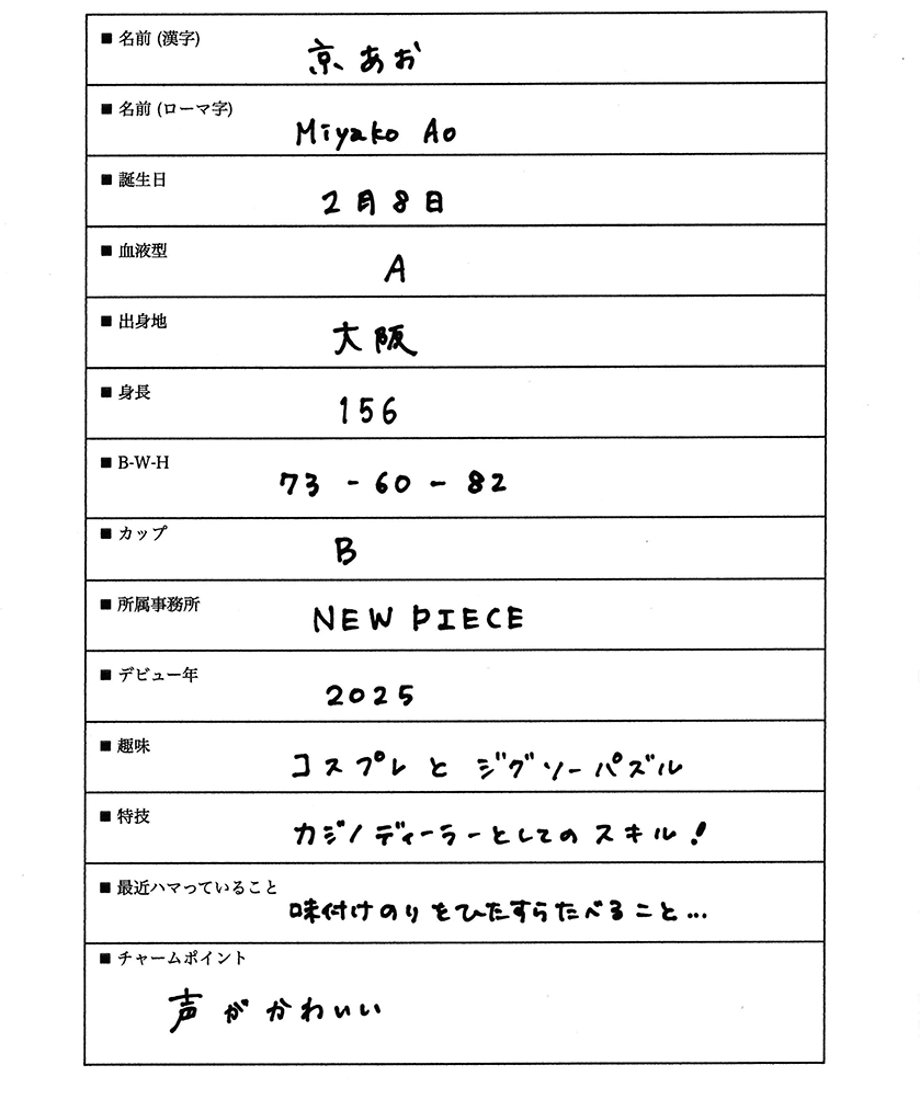 ■ 名前 (漢字)
京 あお
■ 名前 (ローマ字)
Miyako Ao
■ 誕生日
2月8日
■ 血液型
A
■ 出身地
大阪
■ 身長
156
■ B-W-H
73 - 60 - 82
■ カップ
B
■ 所属事務所
NEW PIECE
■ デビュー年
2025
■ 趣味
コスプレと ジグソーパズル
■ 特技
カジノディーラーとしてのスキル!
■ 最近ハマっていること
味付けのりをひたすらたべること...
■ チャームポイント
声がかわいい